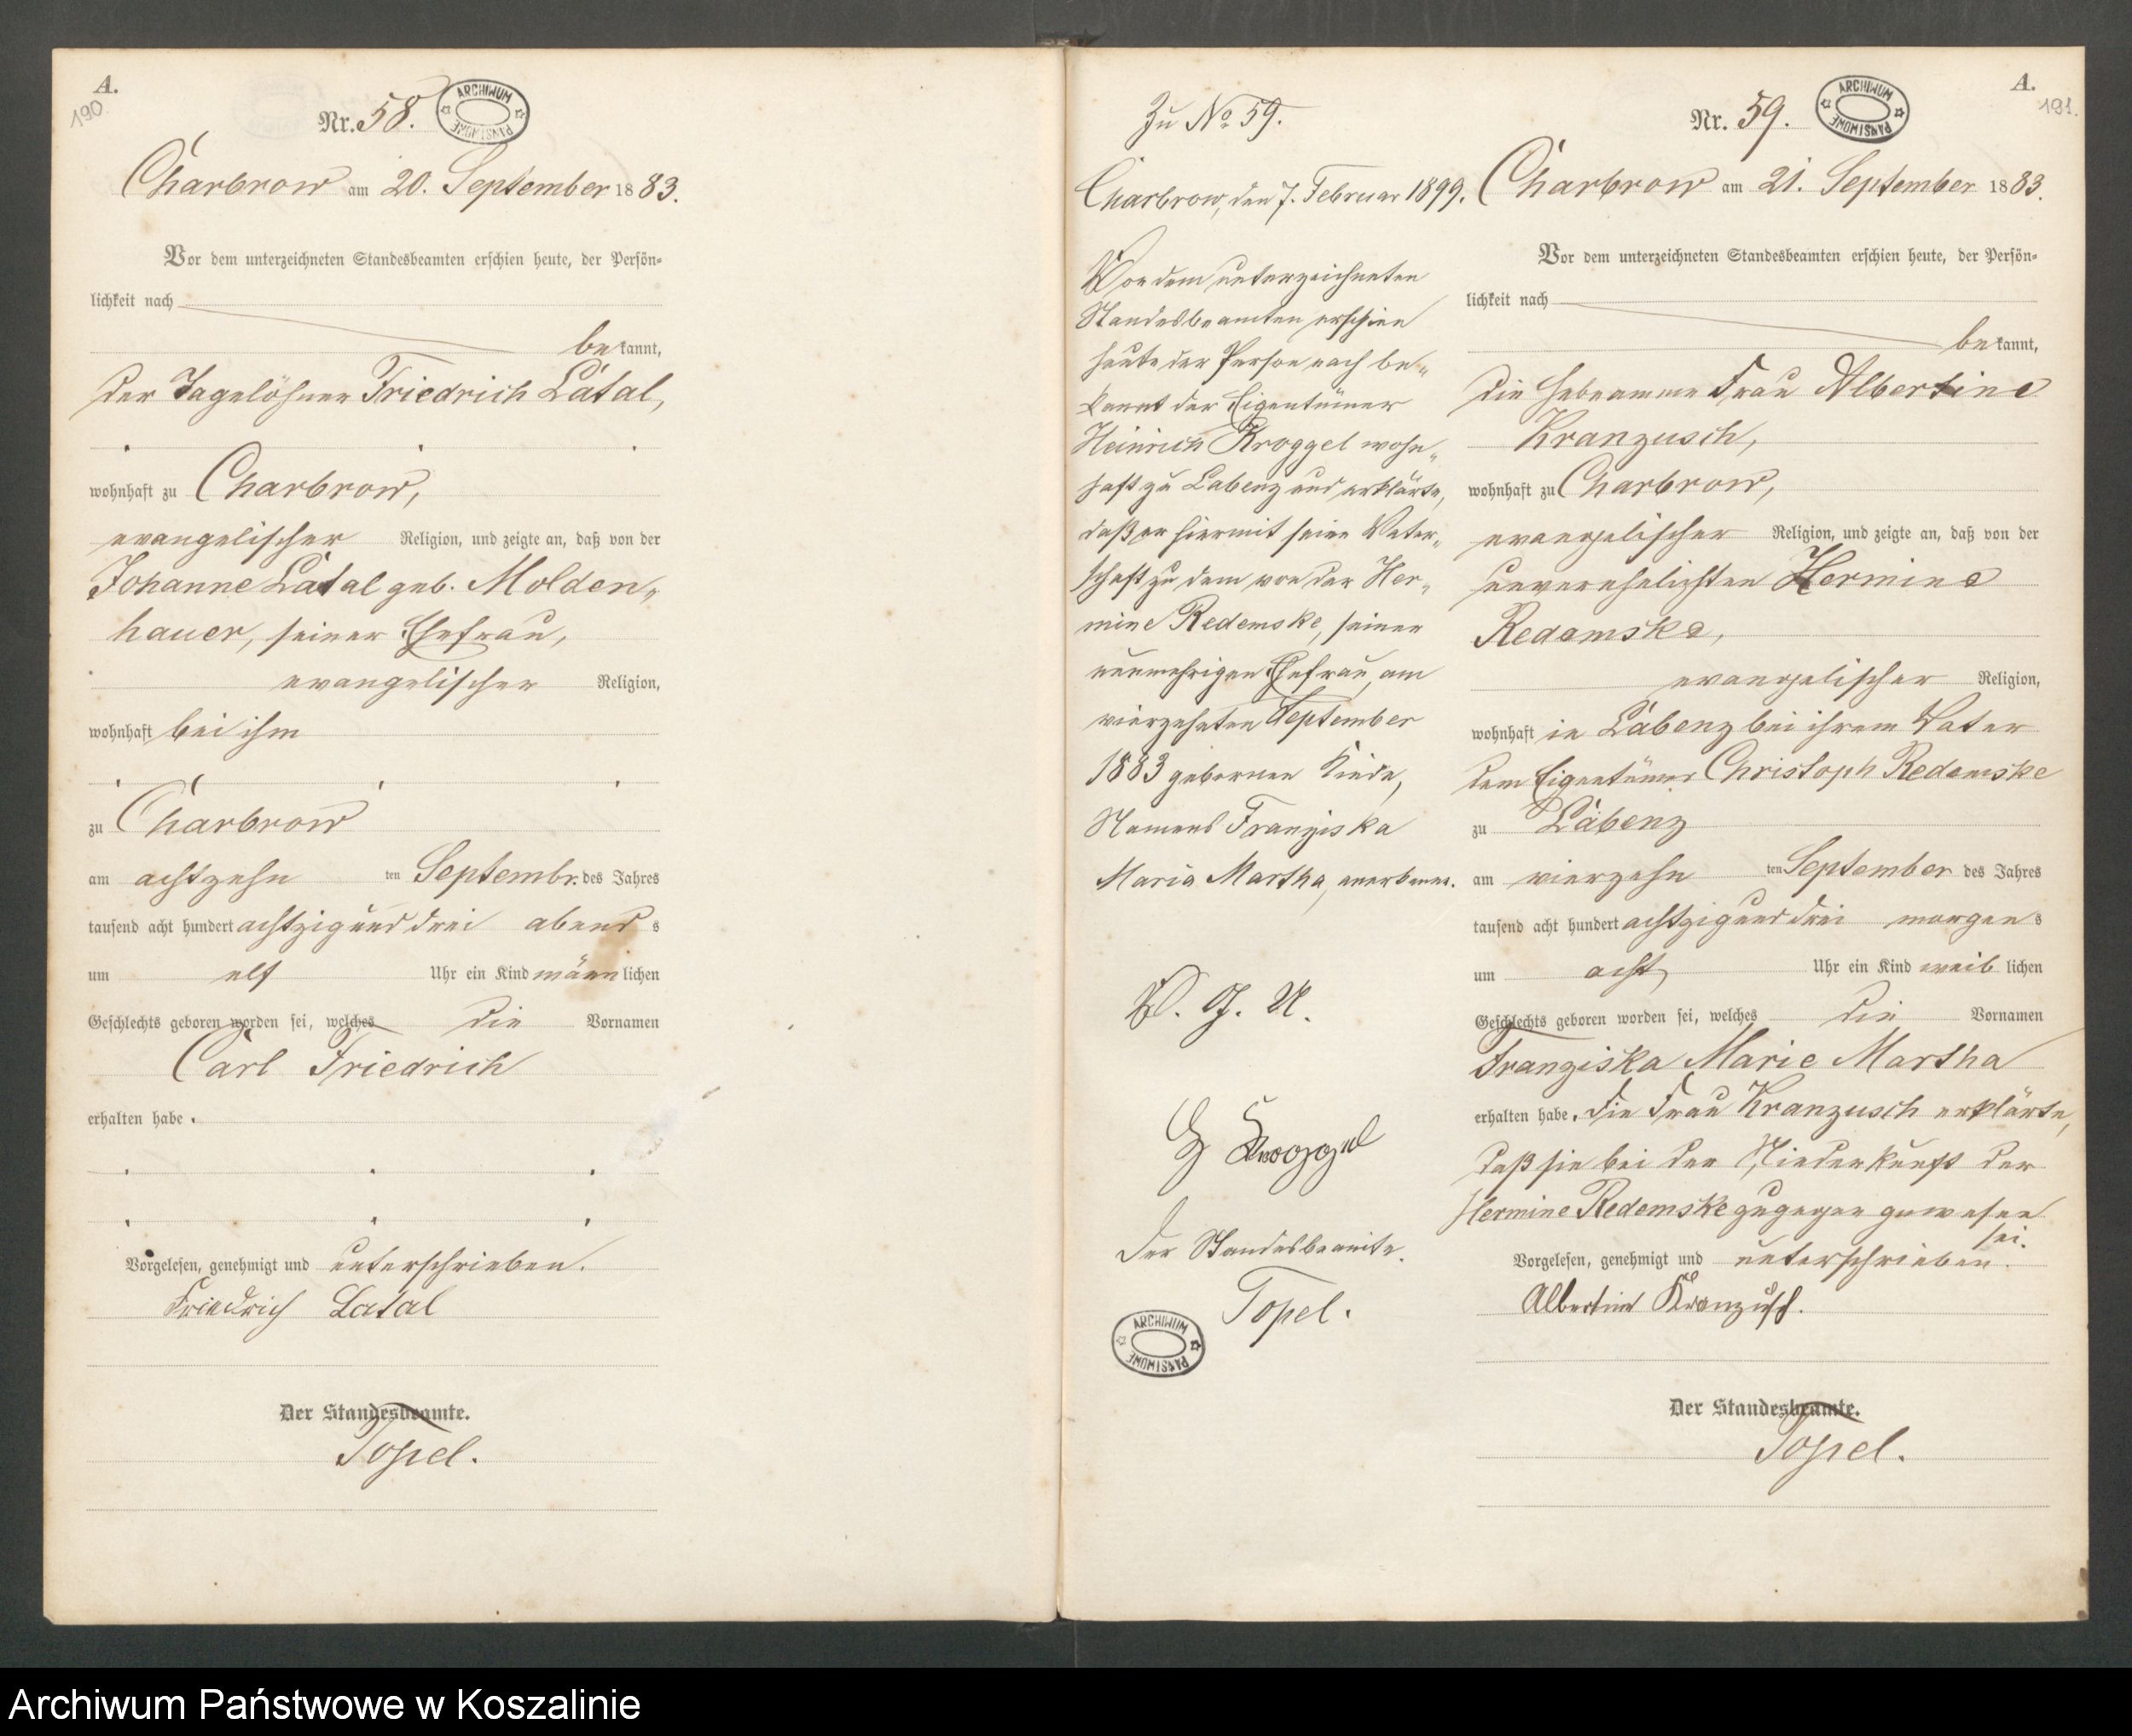 A.
190.
Nr. 58.
ARCHIWUM PAŃSTWOWE
Charbrow am 20. September 1883.
Vor dem unterzeichneten Standesbeamten erschien heute, der Persön-
lichkeit nach
bekannt,
der Tagelöhner Friedrich Latal,
wohnhaft zu Charbrow,
evangelischer Religion, und zeigte an, daß von der
Johanne Latal geb. Molden-
hauer, seiner Ehefrau,
evangelischer Religion,
wohnhaft bei ihm
zu Charbrow
am achtzehn ten Septembr. des Jahres
tausend acht hundert achtzig und drei abends
um elf Uhr ein Kind männlichen
Geschlechts geboren worden sei, welches die Vornamen
Carl Friedrich
erhalten habe.
Vorgelesen, genehmigt und unterschrieben.
Friedrich Latal
Der Standesbeamte.
Topel.
Zu No 59.
Charbrow, den 7. Februar 1899.
Vor dem unterzeichneten
Standesbeamten erschien
heute der Person nach be-
kannt der Eigentümer
Heinrich Kroggel wohn-
haft zu Labenz und erklärte,
daß er hiermit seine Vater-
schaft zu dem von der Her-
mine Redemske, seiner
nunmehrigen Ehefrau, am
vierzehnten September
1883 gebornen Kinde,
Namens Franziska
Maria Martha, anerkenne.
V. G. U.
H Kroggel
Der Standesbeamte.
Topel.
ARCHIWUM PAŃSTWOWE
A.
191.
Nr. 59.
ARCHIWUM PAŃSTWOWE
Charbrow am 21. September 1883.
Vor dem unterzeichneten Standesbeamten erschien heute, der Persön-
lichkeit nach
bekannt,
die Hebeamme Frau Albertine
Kranzusch,
wohnhaft zu Charbrow,
evangelischer Religion, und zeigte an, daß von der
unverehelichten Hermine
Redemske,
evangelischer Religion,
wohnhaft in Labenz bei ihrem Vater
dem Eigentümer Christoph Redemske
zu Labenz
am vierzehn ten September des Jahres
tausend acht hundert achtzig und drei morgens
um acht Uhr ein Kind weiblichen
Geschlechts geboren worden sei, welches die Vornamen
Franziska Marie Martha
erhalten habe. Die Frau Kranzusch erklärte,
daß sie bei der Niederkunft der
Hermine Redemske zugegen gewesen
sei.
Vorgelesen, genehmigt und unterschrieben.
Albertine Kranzusch.
Der Standesbeamte.
Topel.
Archiwum Państwowe w Koszalinie